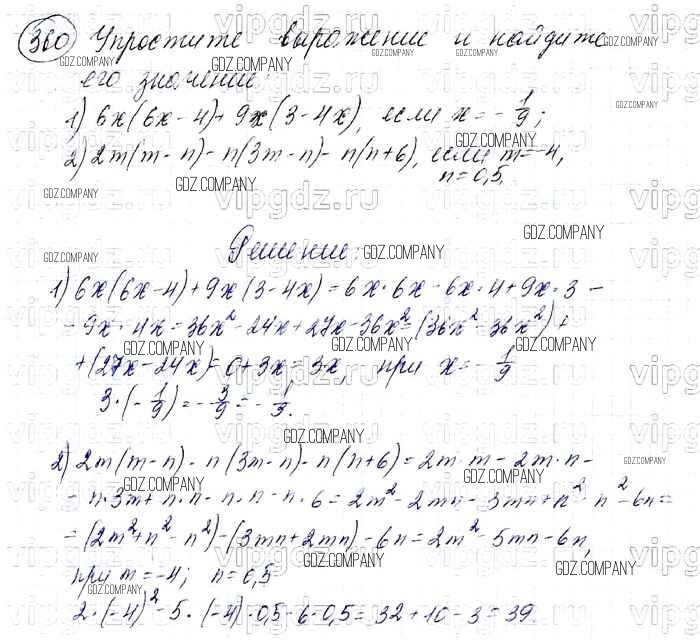 360 Упростите выражение и найдите
его значение:
1) 6x(6x-4)+9x(3-4x), если x=-1/9;
2) 2m(m-n)-n(3m-n)-n(n+6), если m=-4,
n=0,5.
Решение:
1) 6x(6x-4)+9x(3-4x)=6x·6x-6x·4+9x·3-
-9x·4x=36x²-24x+27x-36x²=(36x²-36x²)+
+(27x-24x)=0+3x=3x, при x=-1/9
3·(-1/9)=-3/9=-1/3.
2) 2m(m-n)-n(3m-n)-n(n+6)=2m·m-2m·n-
-n·3m+n·n-n·n-n·6=2m²-2mn-3mn+n²-n²-6n=
=(2m²+n²-n²)-(3mn+2mn)-6n=2m²-5mn-6n,
при m=-4; n=0,5
2·(-4)²-5·(-4)·0,5-6·0,5=32+10-3=39.
vipgdz.ru
GDZ.COMPANY